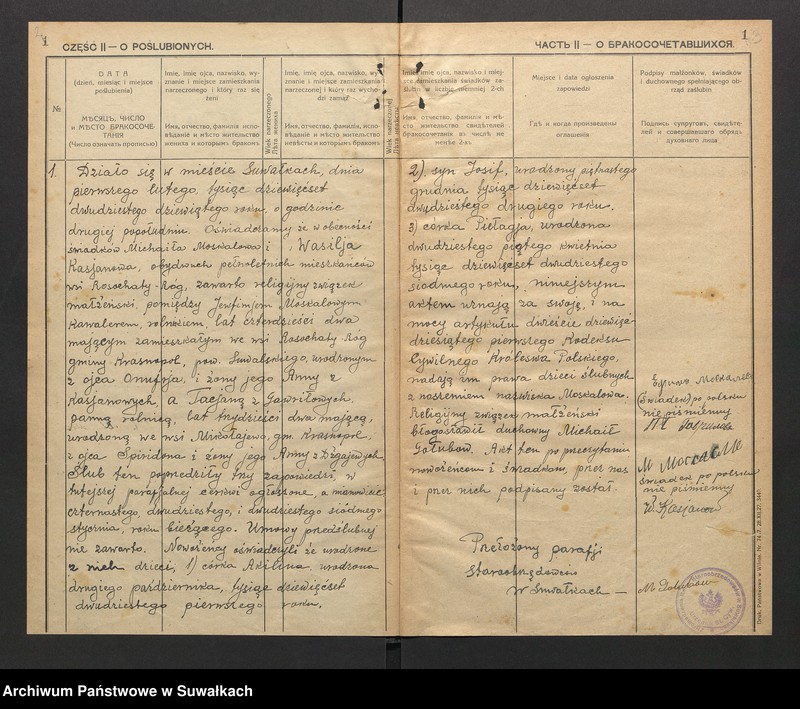 1
CZĘŚĆ II — O POŚLUBIONYCH.
№
DATA
(dzień, miesiąc i miejsce
poślubienia)
МѢСЯЦЪ, ЧИСЛО
и МѢСТО БРАКОСОЧЕ-
ТАНІЯ
(Число означать прописью)
Imię, imię ojca, nazwisko, wy-
znanie i miejsce zamieszkania
narzeczonego i który raz się
żeni
Имя, отчество, фамилія, испо-
вѣданіе и мѣсто жительство
жениха и которымъ бракомъ
Wiek narzeczonego
Лѣта жениха
Imię, imię ojca, nazwisko, wy-
znanie i miejsce zamieszkania
narzeczonej i który raz wycho-
dzi zamąż
Имя, отчество, фамилія, испо-
вѣданіе и мѣсто жительство
невѣсты и которымъ бракомъ
Wiek narzeczonej
Лѣта невѣсты
1. Działo się w mieście Suwałkach, dnia
pierwszego lutego, tysiąc dziewięćset
dwudziestego dziewiątego roku, o godzinie
drugiej popołudniu. Oświadczamy że w obecności
świadków Michaiła Moskalowa i Wasilja
Kasjanowa, obydwuch pełnoletnich mieszkańców
wsi Rosochaty-Róg, zawarto religijny związek
małżeński, pomiędzy Jewfimjem Moskalowym
Kawalerem, rolnikiem, lat czterdzieści dwa
mającym zamieszkałym we wsi Rosochaty Róg
gminy Krasnopol, pow. Suwalskiego, urodzonym
z ojca Onufrja, i żony jego Anny z
Kasjanowych, a Tacjaną z Gawriłowych,
panną rolnicą, lat trzydzieści dwa mającą,
urodzoną we wsi Mikołajewo, gm. Krasnopol,
z ojca Spiridona i żony jego Anny z Dzgajewych.
Ślub ten poprzedziły trzy zapowiedzi, w
tutejszej parafjalnej cerkwi ogłoszone, a mianowicie
czternastego, dwudziestego, i dwudziestego siódmego
stycznia, roku bieżącego. Umowy przedślubnej
nie zawarto. Nowożeńcy oświadczyli że urodzone
z nich dzieci, 1) córka Akilina, urodzona
drugiego października, tysiąc dziewięćset
dwudziestego pierwszego roku.
1
ЧАСТЬ II — О БРАКОСОЧЕТАВШИХСЯ.
Imię, imię ojca, nazwisko i miej-
sce zamieszkania świadków za-
ślubin w liczbie niemniej 2-ch
Имя, отчество, фамилія и мѣ-
сто жительство свидѣтелей
бракосочетанія въ числѣ не
менѣе 2-хъ
Miejsce i data ogłoszenia
zapowiedzi
Гдѣ и когда произведены
оглашенія
Podpisy małżonków, świadków
i duchownego spełniającego ob-
rząd zaślubin
Подпись супруговъ, свидѣте-
лей и совершавшаго обрядъ
духовнаго лица
2). syn Josif, urodzony piętnastego
grudnia tysiąc dziewięćset
dwudziestego drugiego roku.
3) córka Piełagja, urodzona
dwudziestego piątego kwietnia
tysiąc dziewięćset dwudziestego
siódmego roku, niniejszym
aktem uznają za swoją, i na
mocy artykułu dwieście dziewięć-
dziesiątego pierwszego Kodeksu
Cywilnego Królestwa Polskiego,
nadają im prawa dzieci ślubnych
z noszeniem nazwiska Moskalowa.
Religijny związek małżeński
błogosławił duchowny Michaił
Gołubow. Akt ten po przeczytaniu
nowożeńcom i świadkom, przez nas
i przez nich podpisany został.
Przełożony parafji
Staroobrzędowców
w Suwałkach —
(świadek) po polsku
nie piśmienny
świadek po polsku
nie piśmienny
W. Kasjanow
M Gołubow
Druk. Państwowa w Wilnie.
Archiwum Państwowe w Suwałkach